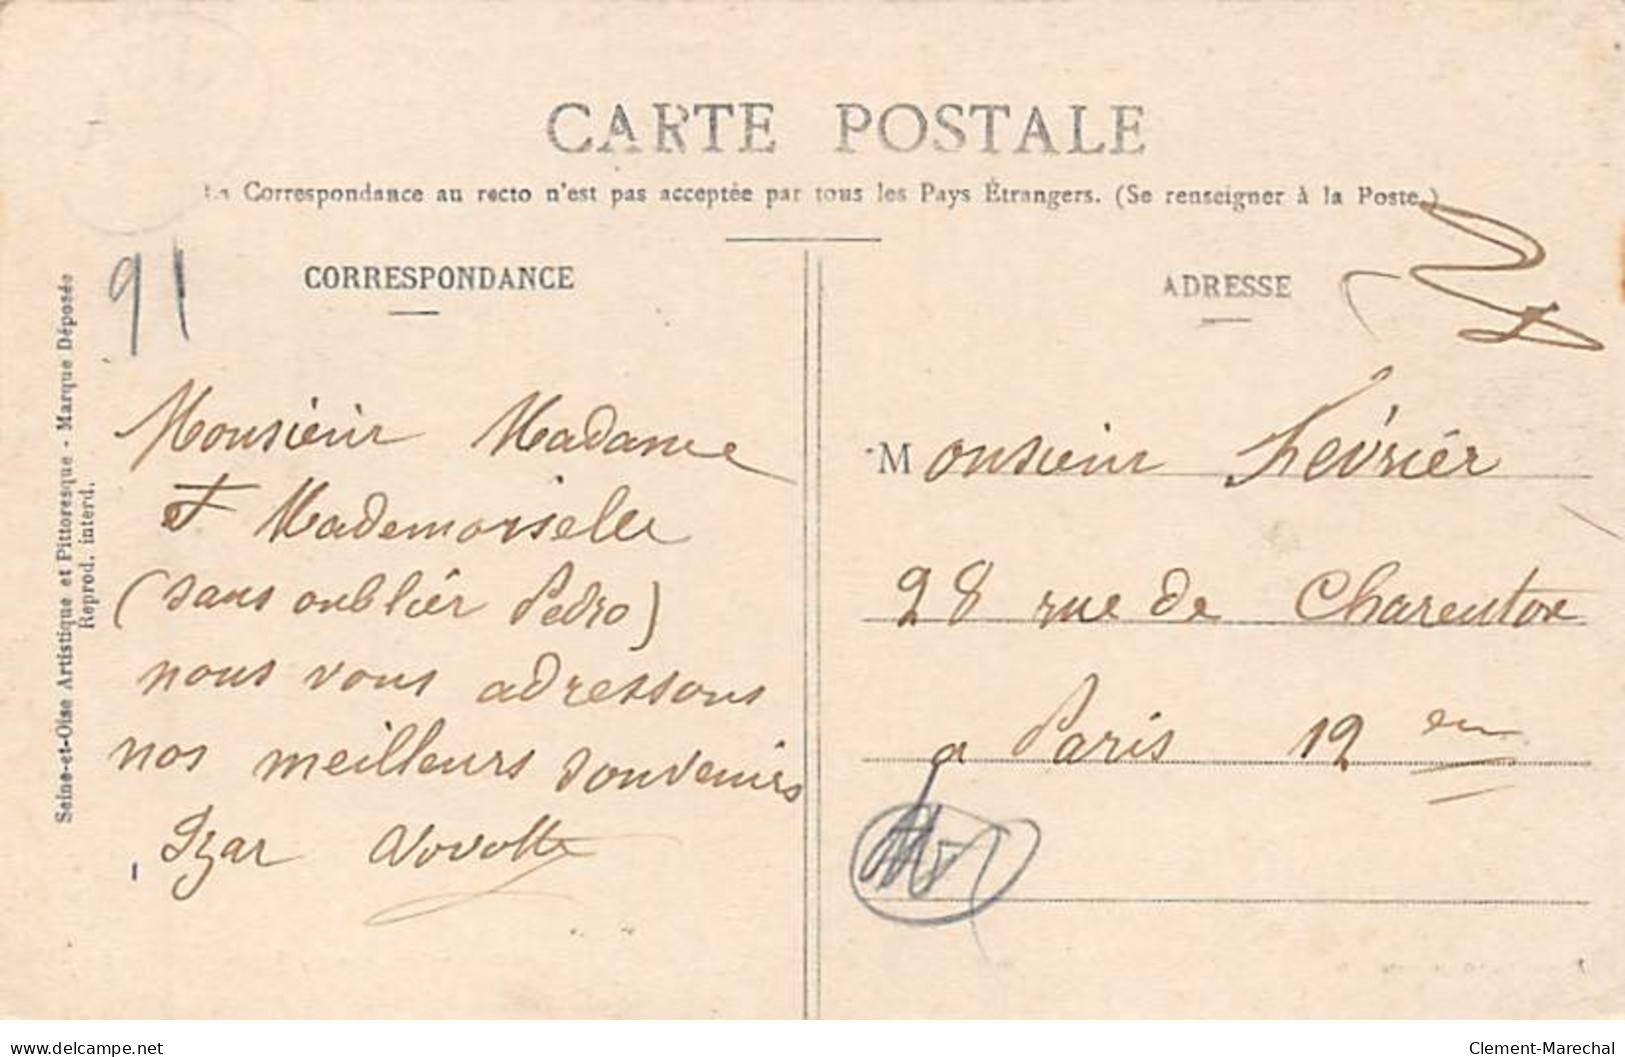 CARTE POSTALE
La Correspondance au recto n'est pas acceptée par tous les Pays Étrangers. (Se renseigner à la Poste.)
CORRESPONDANCE
ADRESSE
91
Seine-et-Oise Artistique et Pittoresque - Marque Déposée
Reprod. interd.
Monsieur Madame
et Mademoiselle
(sans oublier Pedro)
nous vous adressons
nos meilleurs souvenirs
Izar
Monsieur Février
28 rue de Charenton
a Paris 12 em
delcampe.net
Clement-Marechal